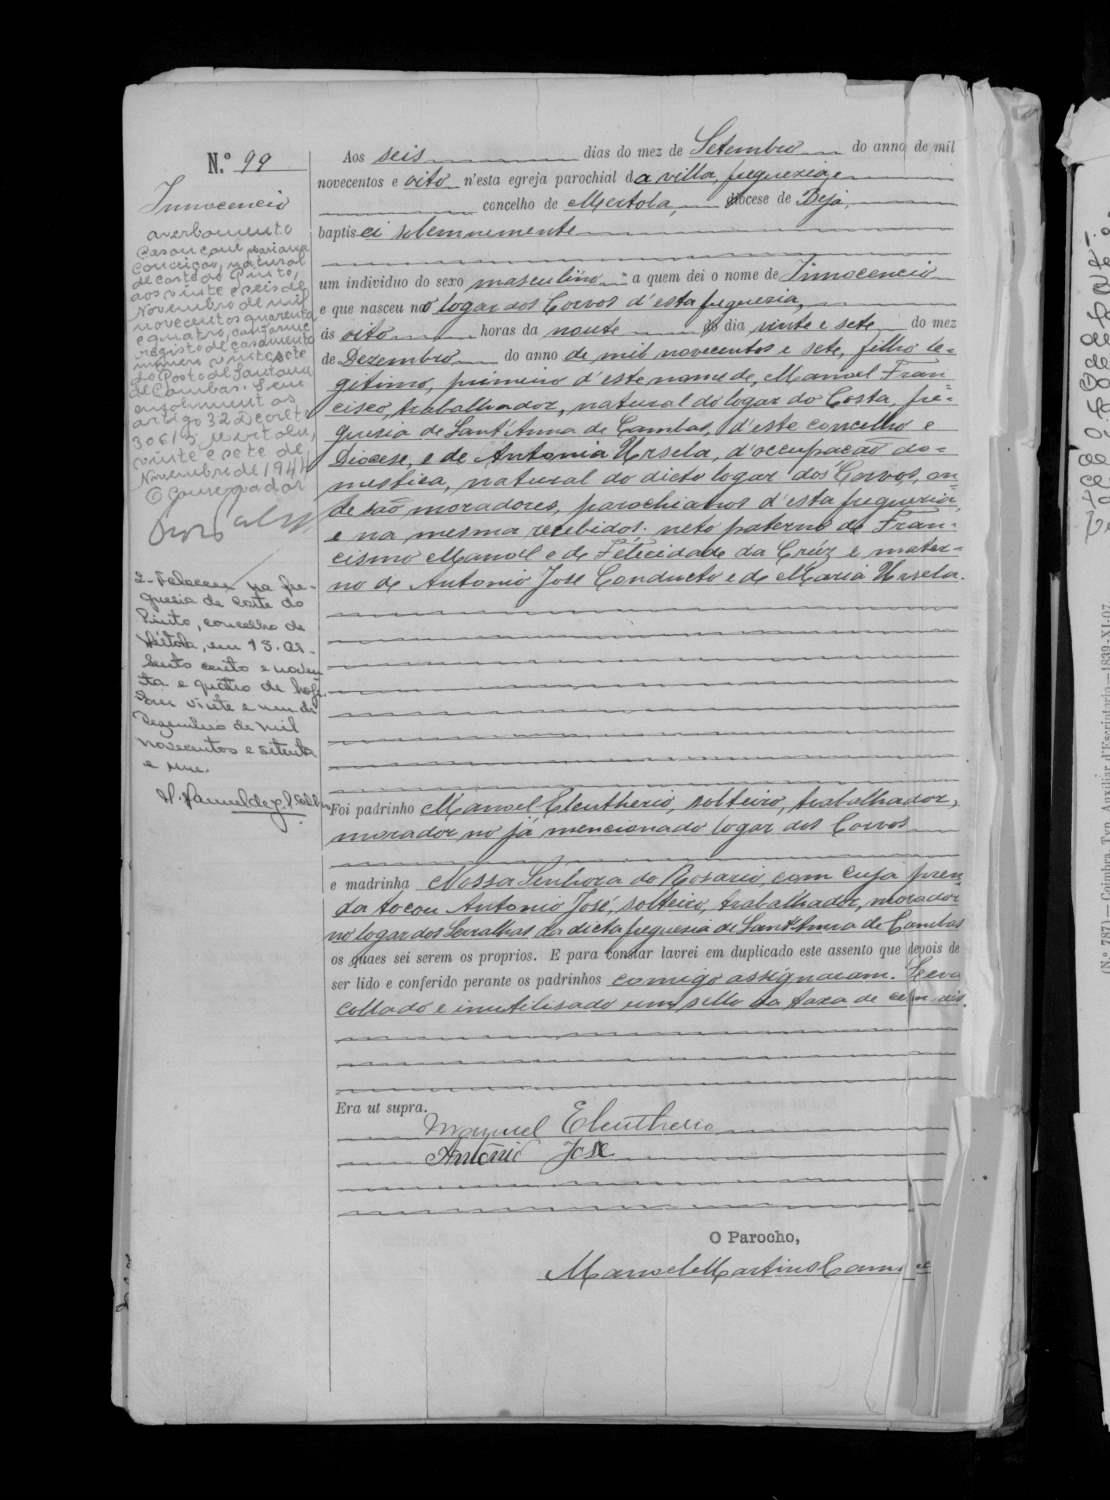 N.º 99
Innocencio
averbamento
Casou com Mariana
Conceição, natural
de Corte do Pinto,
aos vinte e seis de
Novembro de mil
novecentos quarenta
e quatro, conforme
registo de casamento
número vinte e sete
do Posto de Santana
de Cambas.
artigo 32 Decreto
30615. Mertola,
vinte e sete de
Novembro de 1944
O Conservador
2- Faleceu na fre-
guesia de Corte do
Pinto, concelho de
Mértola, em 13. As-
sento cento e noven
ta e quatro de hoje.
vinte e um de
Dezembro de mil
novecentos e setenta
e um.
Aos seis dias do mez de Setembro do anno de mil
novecentos e oito n'esta egreja parochial da villa, freguezia e
concelho de Mertola, diocese de Beja,
baptisei solemnemente
um individuo do sexo masculino a quem dei o nome de Innocencio
e que nasceu no logar dos Corvos d'esta freguezia,
ás oito horas da noute do dia vinte e sete do mez
de Dezembro do anno de mil novecentos e sete, filho le-
gitimo, primeiro d'este nome de, Manoel Fran
cisco, trabalhador, natural do logar do Costa, fre-
guesia de Sant'Anna de Cambas, d'este concelho e
Diocese, e de Antonia Ursela, d'occupação do-
mestica, natural do dicto logar dos Corvos, on
de são moradores, parochianos d'esta freguezia,
e na mesma recebidos: neto paterno de Fran-
cismo Manoel e de Felicidade da Crúz e mater-
no de Antonio Jose Conducto e de Maria Ursela.
Foi padrinho Manoel Eleutherio, solteiro, trabalhador,
morador no já mencionado logar dos Corvos
e madrinha Nossa Senhora do Rosario, com cuja pren
da tocou Antonio José, solteiro, trabalhador, morador
no logar dos Serralhas da dicta freguesia de Sant'Anna de Cambas
os quaes sei serem os proprios. E para constar lavrei em duplicado este assento que depois de
ser lido e conferido perante os padrinhos comigo assignaram. Leva
collado e inutilisado um sello da taxa de cem reis.
Era ut supra.
Manuel Eleutherio
António José
O Parocho,
Manoel Martins
(N.º 787)—Coimbra, Typ. Auxiliar d'Escriptorio—1899-XI-07.